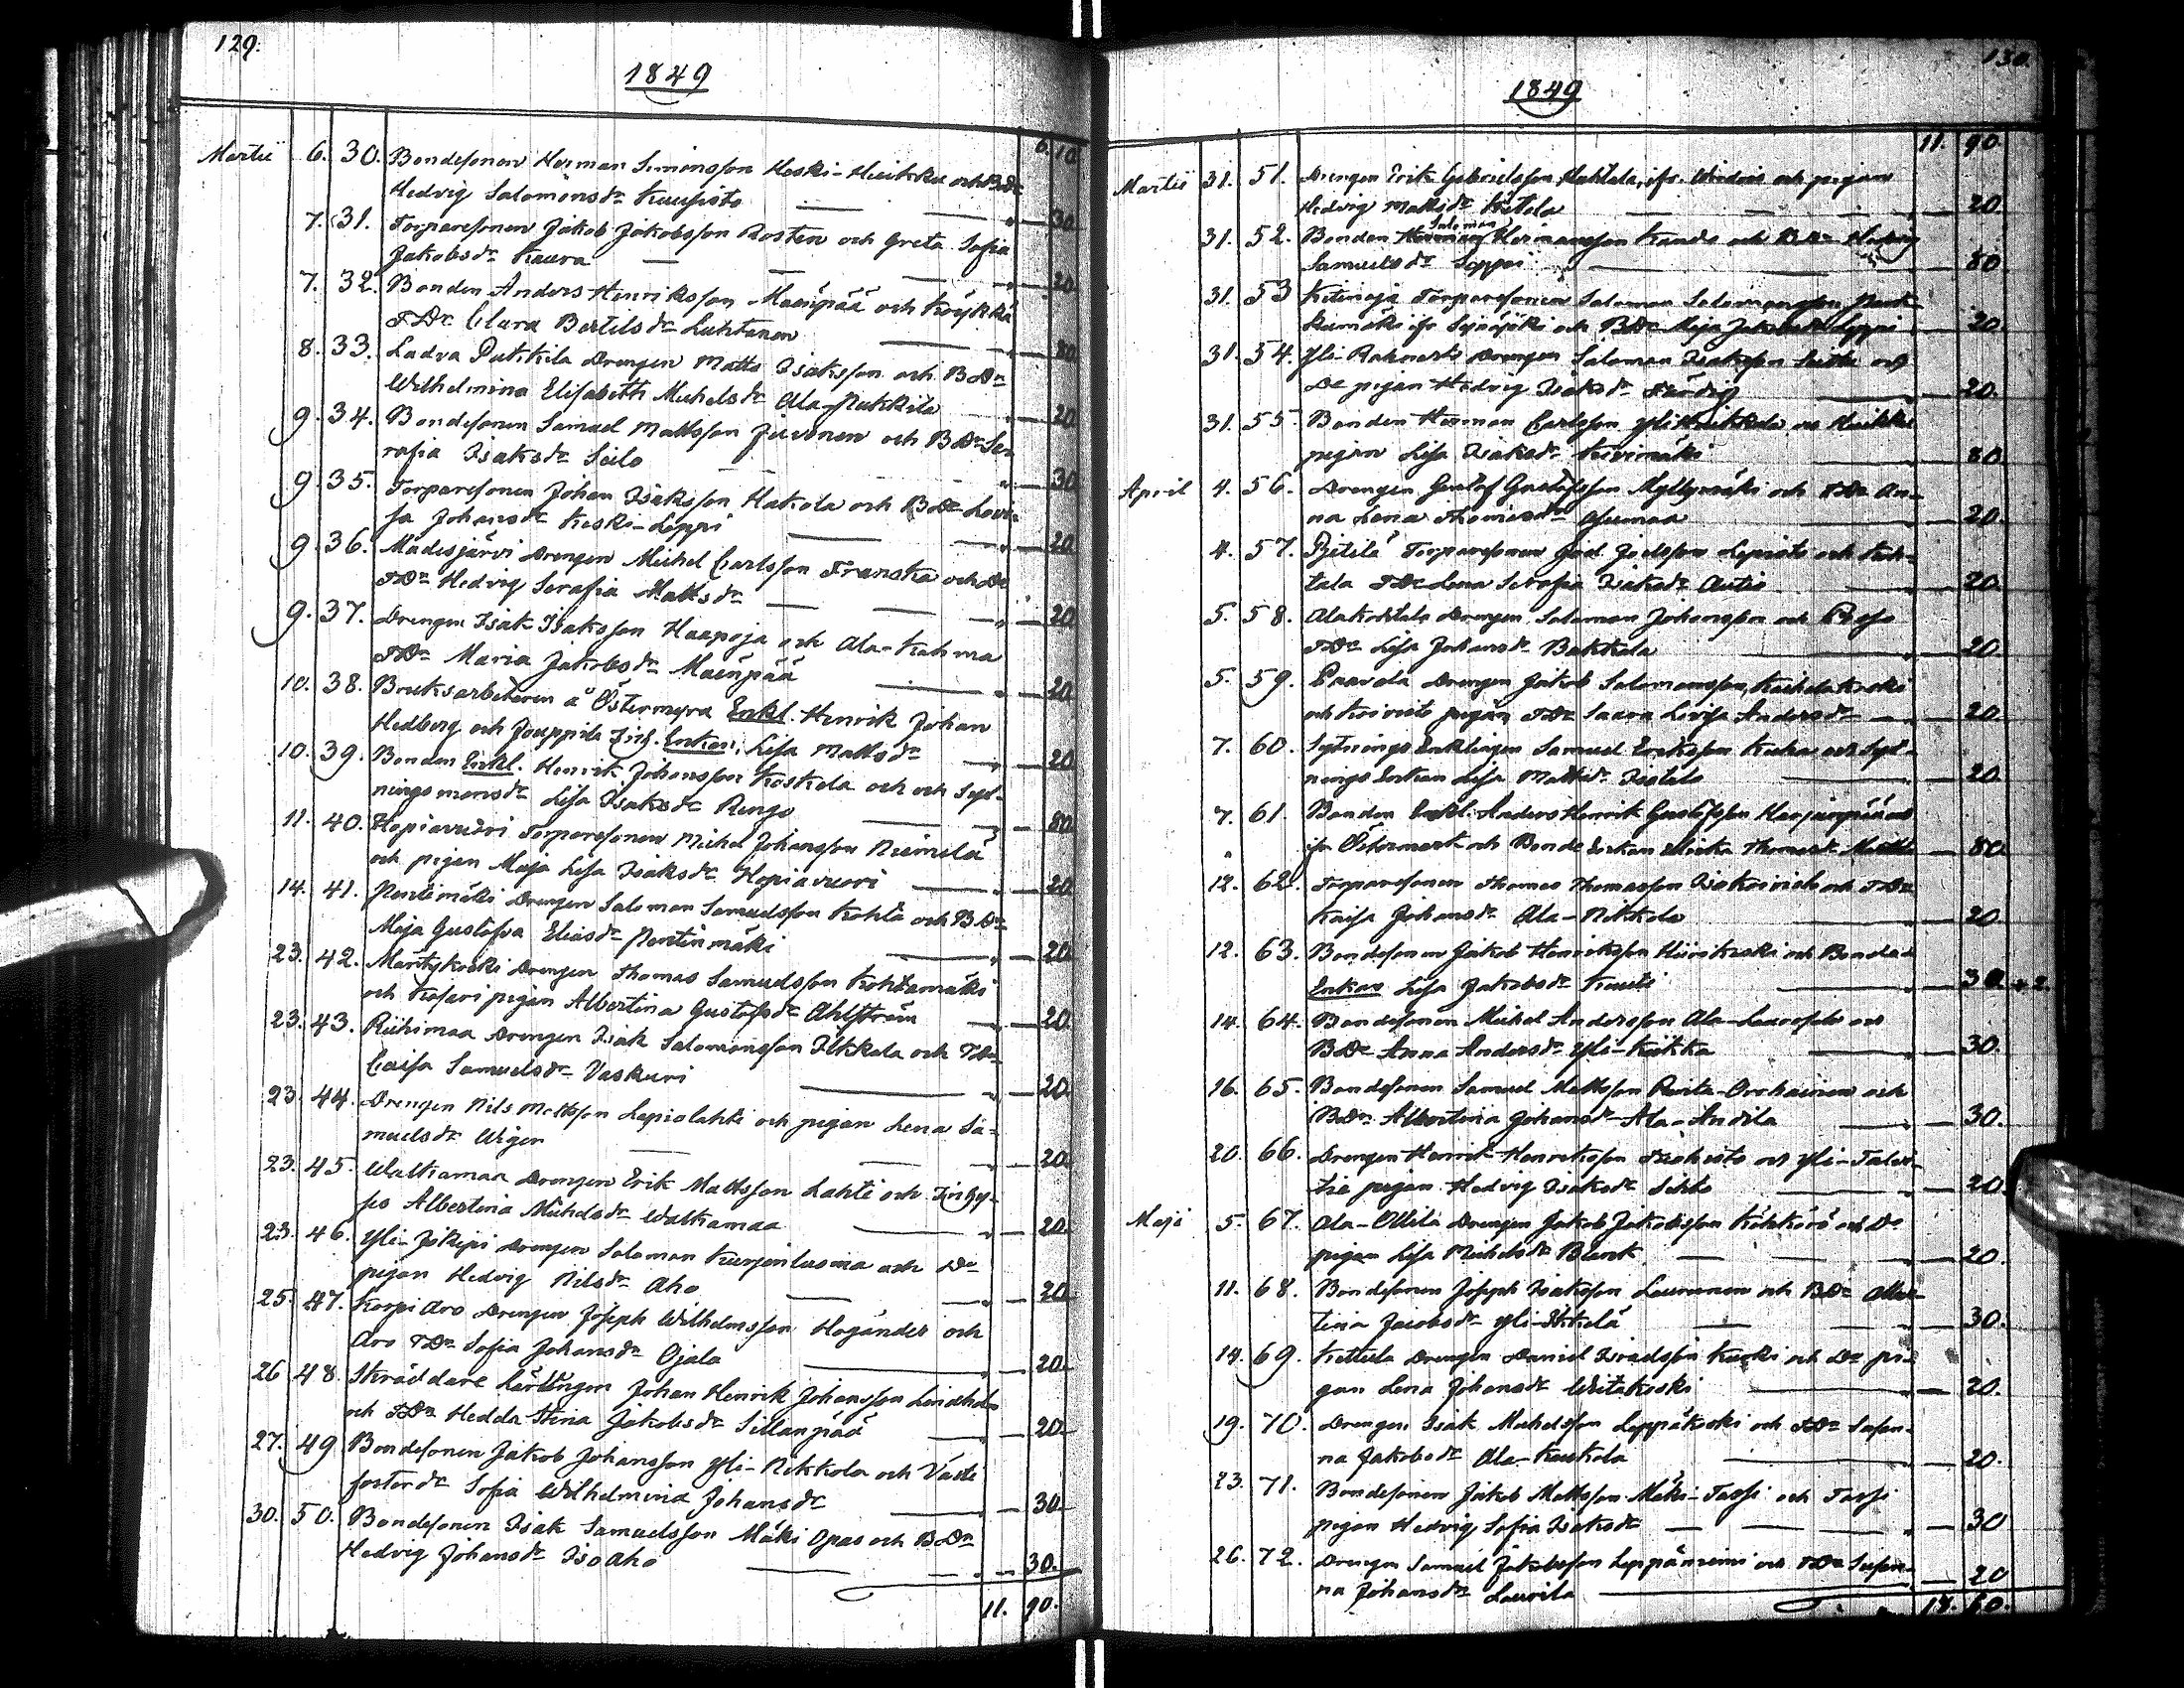 129.
1849
6. 10
Martii 6. 30. Bondesonen Herman Simonsson Koski-Heikku och BDr
Hedvig Salomonsdr Kuusisto — 30
7. 31. Torparesonen Jakob Jakobsson Rosten och Greta Sofia
Jakobsdr Kaura — 20
7. 32. Bonden Anders Henriksson Mäenpää och Köykkä
TDr Clara Bertilsdr Luhtanen — 80
8. 33. Ladva Pukkila Drengen Matts Isaksson och BDr
Wilhelmina Elisabeth Michelsdr Ala-Pukkila — 20
9. 34. Bondesonen Samuel Mattsson Juvonen och BDr Se-
rafia Isaksdr Seilo — 30
9. 35. Torparesonen Johan Isaksson Hakola och BDr Lovi-
sa Johansdr Keski-Loppi — 20
9. 36. Madesjärvi Drengen Michel Carlsson Franska och Dr
TDr Hedvig Serafia Mattsdr — 20
9. 37. Drengen Isak Isaksson Haapoja och Ala-Kahma
TDr Maria Jakobsdr Mäenpää — 20
10. 38. Bruksarbetaren å Östermyra Enkl. Henrik Johan
Hedberg och Jouppila Enkan, Lisa Mattsdr — 20
10. 39. Bonden Enkl. Henrik Johansson Koskela och och Syt-
ningsmansdr Lisa Isaksdr Rengo — 80
11. 40. Hopiavuori Torparesonen Michel Johansson Niemelä
och pigan Maja Lisa Isaksdr Hopiavuori — 20
14. 41. Pentimäki Drengen Saloman Samuelsson Kohta och BDr
Maja Gustafva Eliasdr Pentinmäki — 20
23. 42. Märitykoski Drengen Thomas Samuelsson Kohtamäki
och Kosari pigan Albertina Gustafsdr Ahlström — 20
23. 43. Riihimaa Drengen Isak Salomonsson Ilkkala och TDr
Caisa Samuelsdr Vaskuri — 20
23. 44. Drengen Nils Mattsson Lepiolahti och pigan Lena Sa-
muelsdr Wigen — 20
23. 45. Walkamaa Drengen Erik Mattsson Lahti och
Albertina Michelsdr Walkamaa — 20
23. 46. Yli-Jökipi Drengen Saloman Kurjenluoma och Dr
pigan Hedvig Nilsdr Aho — 20
25. 47. Korpi Aro Drengen Joseph Wilhelmsson Hogander och
Aro TDr Sofia Johansdr Ojala — 20
26 48. Skräddare Lärlingen Johan Henrik Johansson Lindholm
och TDr Hedda Stina Jakobsdr Sillanpää — 20
27. 49 Bondesonen Jakob Johansson Yli-Nikkola och Västi
fosterdr Sofia Wilhelmina Johansdr — 30
30. 50. Bondesonen Isak Samuelsson Mäki Opas och BDr
Hedvig Johansdr Iso Aho — 30.
11. 90.
130.
1849
11. 90
Martii 31. 51. Drengen Erik Gabrielsson Hahtala, ifr. och pigan
Hedvig Mattsdr — 20.
Saloman
31. 52. Bonden Herman Hermansson och BDr Hedvig
Samuelsdr Loppi — 80
31. 53 Kitinoja Torparesonen Saloman Salomonsson
ifr och BDr Maja Loppi — 20
31. 54. Yli-Rahnasto Drengen Saloman Isaksson och
Dr pigan Hedvig Isaksdr Färdig — 20.
31. 55. Bonden Herman Carlsson Yli Heikkola och Heikki
pigan Lisa Isaksdr Kivimäki — 80
April 4. 56. Drengen Gustaf Gustafsson Myllymäki och TDr An-
na Lena Thomasdr Asumaa — 20
4. 57. Pitilä Torparesonen Joel Joelsson Lepistö och Kuh-
tala TDr Lena Serafia Isaksdr Autio — 20
5. 58. Alakohtala Drengen Saloman Johansson och
TDr Lisa Johansdr Bakkala — 20
5. 59. Paavola Drengen Jakob Salomonsson
och Koivisto pigan TDr Saara Lovisa Andersdr — 20
7. 60. Sytnings Enklingen Samuel Eriksson Kuha och Syt-
nings Enkan Lisa Mattsdr Isotalo — 20
7. 61. Bonden Enkl. Anders Henrik Gustafsson Harjunpää
ifr Östermark och Bonde Enkan Thomasdr — 80.
12. 62. Torparesonen Thomas Thomasson Isokoivisto och TDr
Kaisa Johansdr Ala-Nikkola — 20
12. 63. Bondesonen Jakob Henriksson Hiirikoski och Bonde
Enkan Lisa Jakobsdr Kauti — 30
14. 64. Bondesonen Michel Andersson Ala- och
BDr Anna Andersdr Yli- — 30.
16. 65. Bondesonen Samuel Mattsson Renta-Orchainen och
BDr Albertina Johansdr Ala-Andila — 30.
20. 66. Drengen Henrik Henriksson och Yli-
pigan Hedvig Isaksdr — 20
Maji 5. 67. Ala-Ollila Drengen Jakob Jakobsson Köhkörö och Dr
pigan Lisa Michelsdr Blank — 20
11. 68. Bondesonen Joseph Isaksson Laurunen och BDr Alber-
tina Jacobsdr Yli- — 30.
14. 69. Kettula Drengen Daniel Israelsson Kaski och Dr pi-
gan Lena Johansdr Weitakoski — 20.
19. 70. Drengen Isak Michelsson Leppäkoski och TDr Susan-
na Jakobsdr Ala-Kaukola — 20.
23. 71. Bondesonen Jakob Mattsson Mäki-Passi och Passi
pigan Hedvig Sofia Isaksdr — 30
26. 72. Drengen Samuel Jakobsson Leppäniemi och TDr Susan-
na Johansdr Laurila — 20
18. 60.